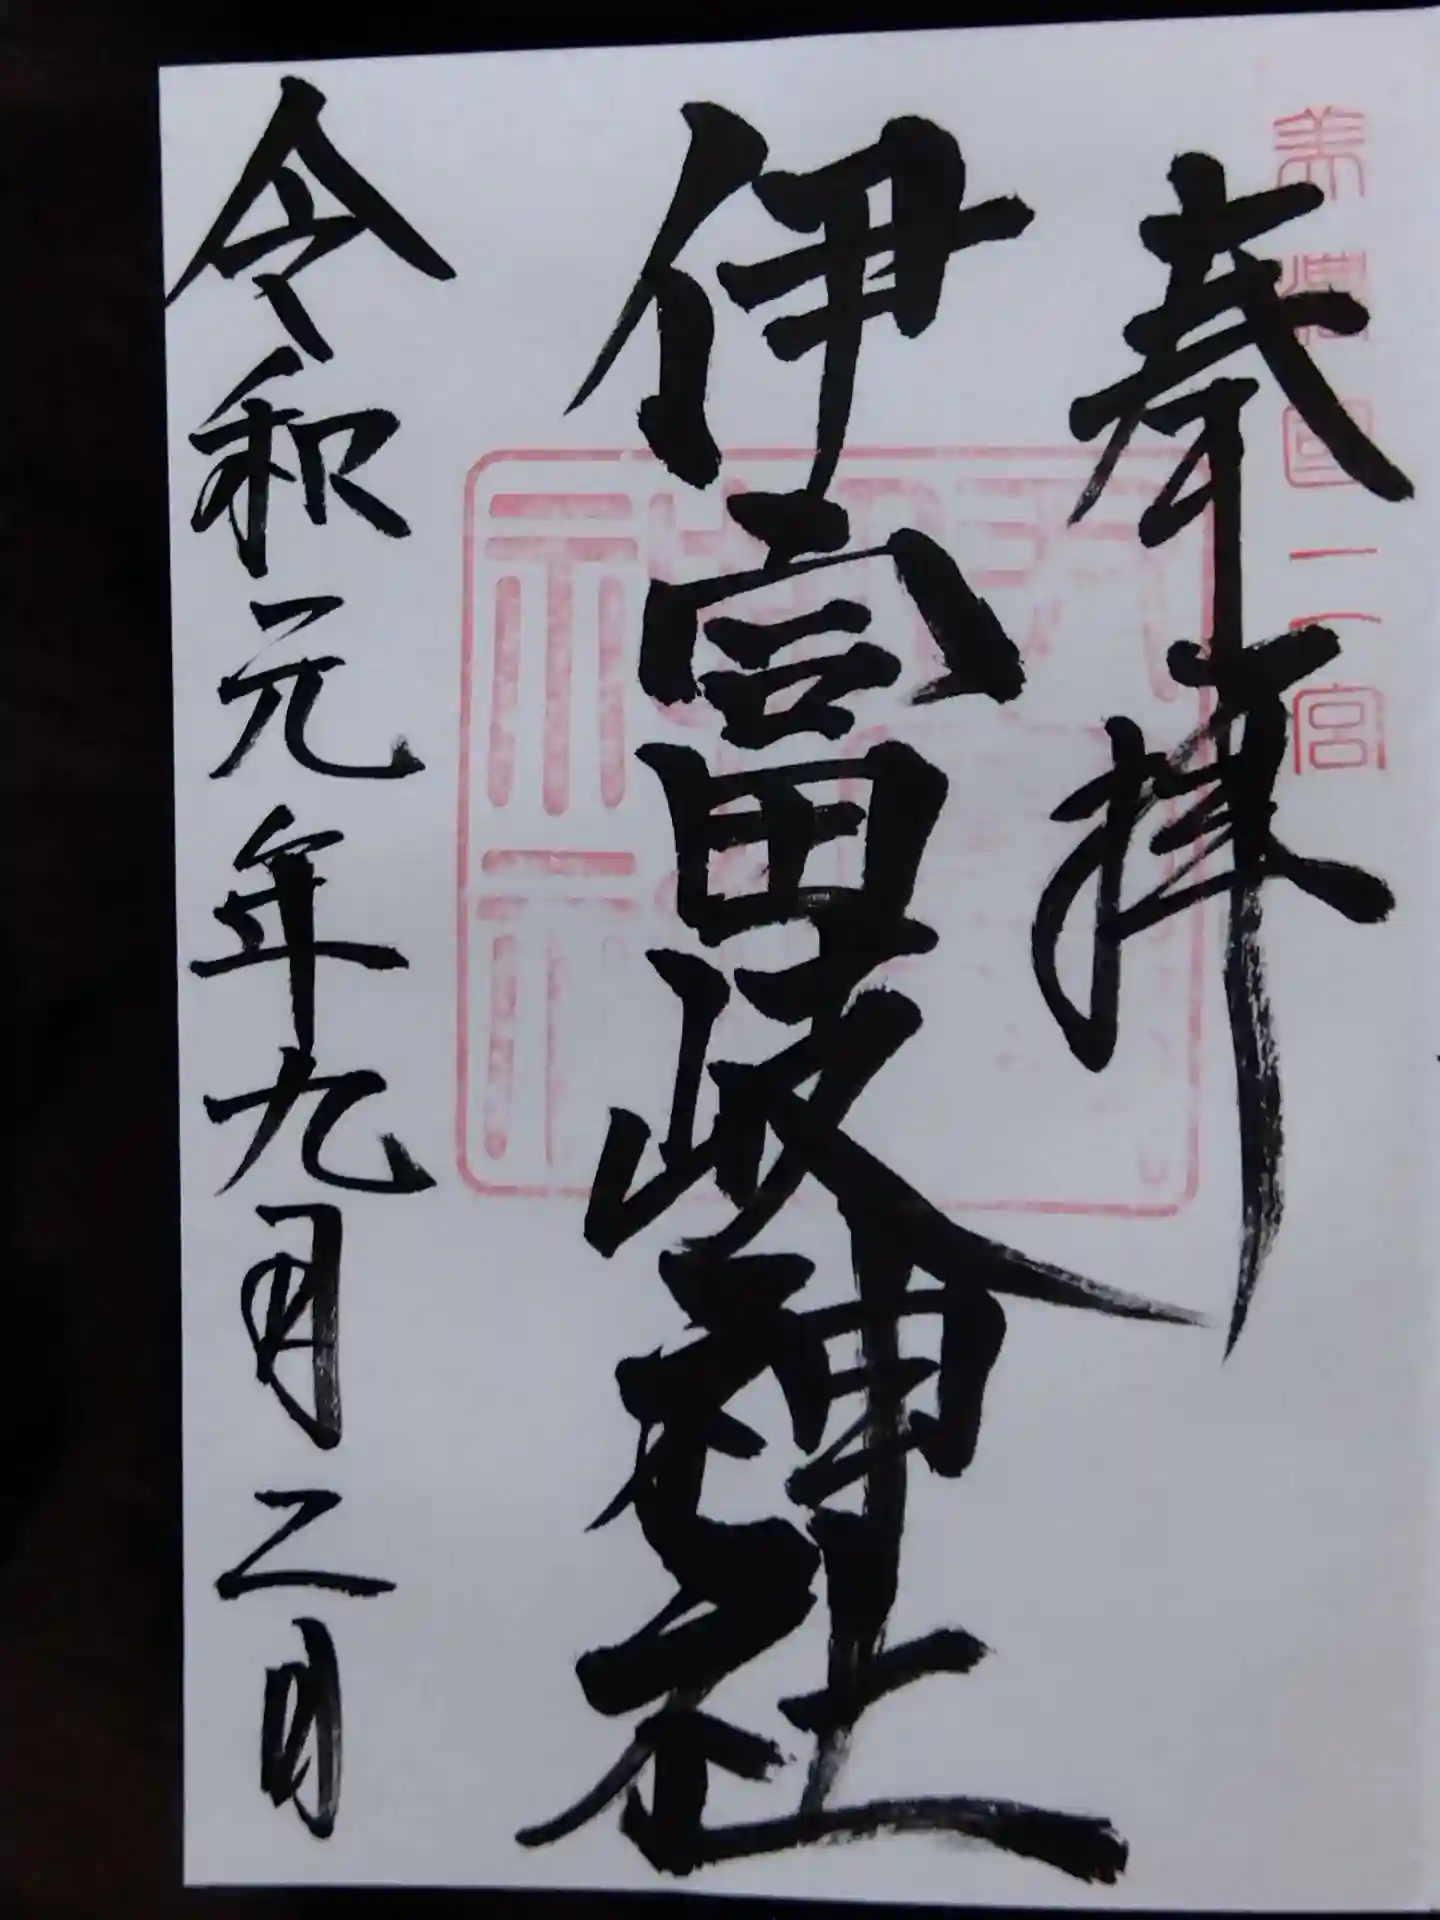 美濃國二宮
奉拝
伊富岐神社
令和元年九月二日